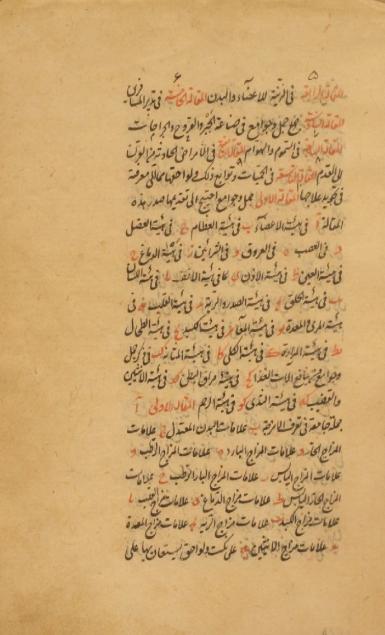 المقالة الرابعة في قوى الأغذية للاعضاء والبدن المقالة الخامسة في تدبير المسافرين
المقالة السابعة جمل وجوامع في صناعة الجبر والقروح والجراحات
المقالة الثامنة في السموم والهوام في الامراض الحادثة من القرن
الى القدم المقالة في الحميات وتوابع ذلك ولواحقها مما في معرفة
في تجويد علاجها المقالة الاولى جمل وجوامع احتيج الى تقديمها صدر هذه
المقالة ا في هيئة الاعضاء ب في هيئة العظام ج في هيئة العضل
د في العصب ه في العروق و في الشرائين ز في هيئة الدماغ ح
في هيئة العين ط في هيئة الاذن ى في هيئة الانف يا في هيئة اللسان
يب في هيئة الحلق يج في هيئة الصدر والرية يد في هيئة القلب يه في
هيئة المرى والمعدة يو في هيئة المعا يز في هيئة الكبد يح في هيئة الطحال
يط في هيئة المرارة ك في هيئة الكلى كا في هيئة المثانة كب في ذكر جمل
وجوامع من منافع الات الغذا كج في هيئة مراق البطن كد في هيئة الانثيين
والقضيب كه في هيئة الثدى كو في هيئة الرحم المقالة الاولى ا
جملة جامعة في تعرف الامزجة ب علامات البدن المعتدل ج علامات
المزاج الحار د علامات المزاج البارد ه علامات المزاج الرطب و
علامات المزاج اليابس ز علامات المزاج البارد الرطب ح علامات
المزاج الحار اليابس ط علامات مزاج الدماغ ى علامات مزاج القلب يا
علامات مزاج الكبد يب علامات مزاج الرية يج علامات مزاج المعدة
يد علامات مزاج الانثيين يه على نكت ولواحق يستعان بها على